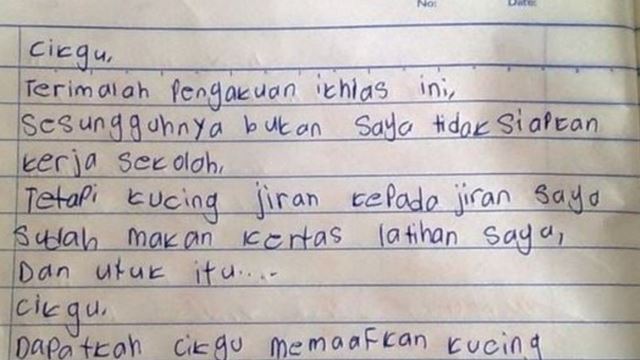 No:
Date:
Cikgu,
Terimalah Pengakuan ikhlas ini,
Sesungguhnya bukan saya tidak siapkan
kerja sekolah,
Tetapi kucing jiran kepada jiran saya
Sudah makan kertas latihan saya,
Dan utuk itu....
Cikgu,
Dapatkah cikgu memaafkan kucing